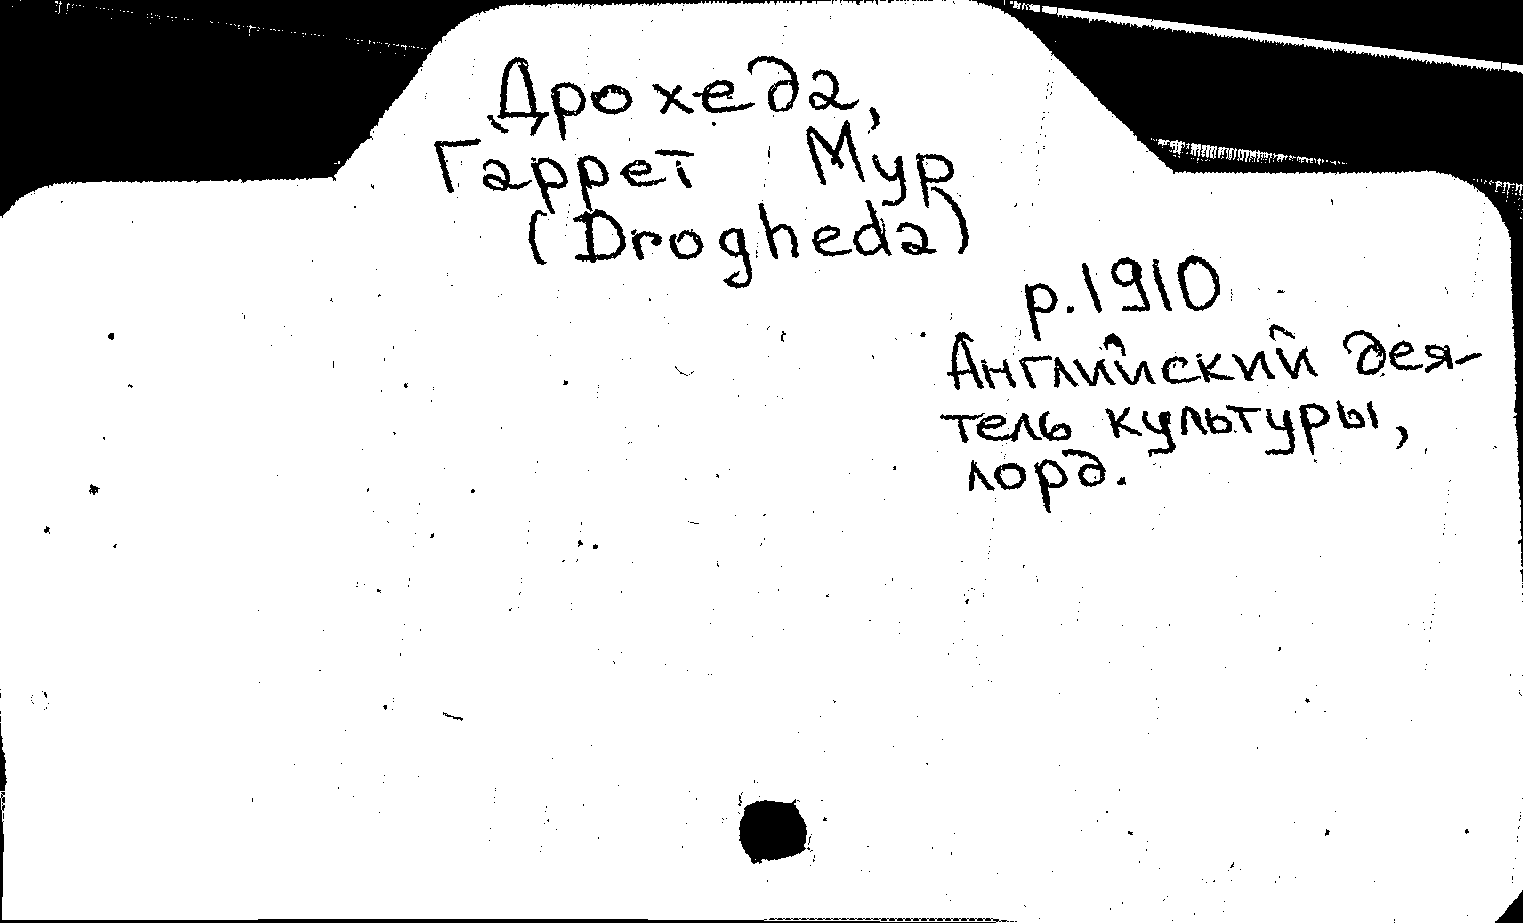 Дрохеда,
Гаррет Мур
(Drogheda)
р.1910
Английский дея-
тель культуры,
лорд.